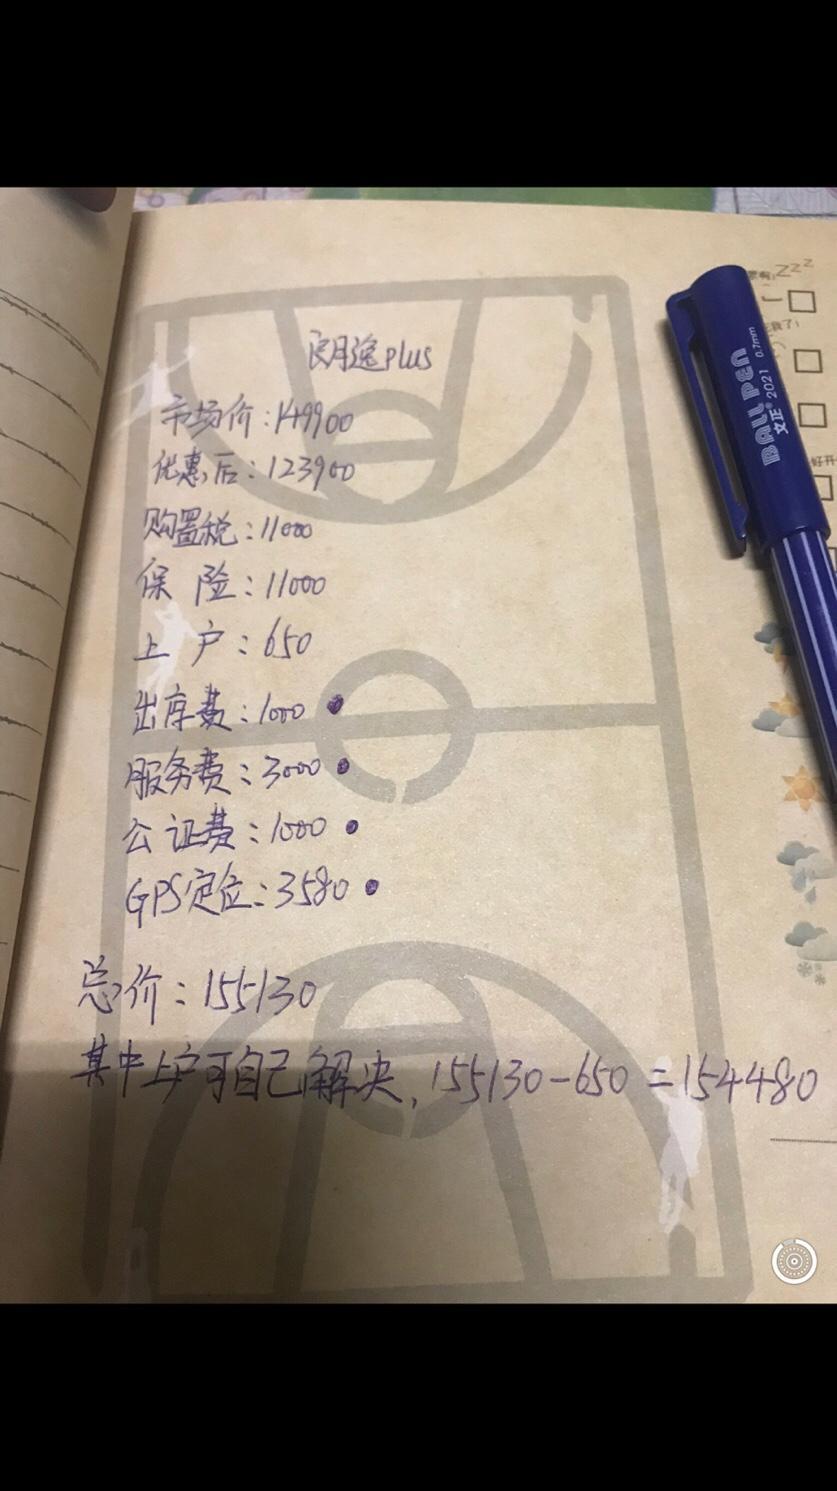 朗逸plus
市场价:149900
优惠后:123900
购置税:11000
保 险:11000
上 户:650
出库费:1000
服务费:3000
公证费:1000
GPS定位:3580
总价:155130
其中上户可自己解决,155130-650=154480
BALL PEN
文正® 2021 0.7mm
zzz